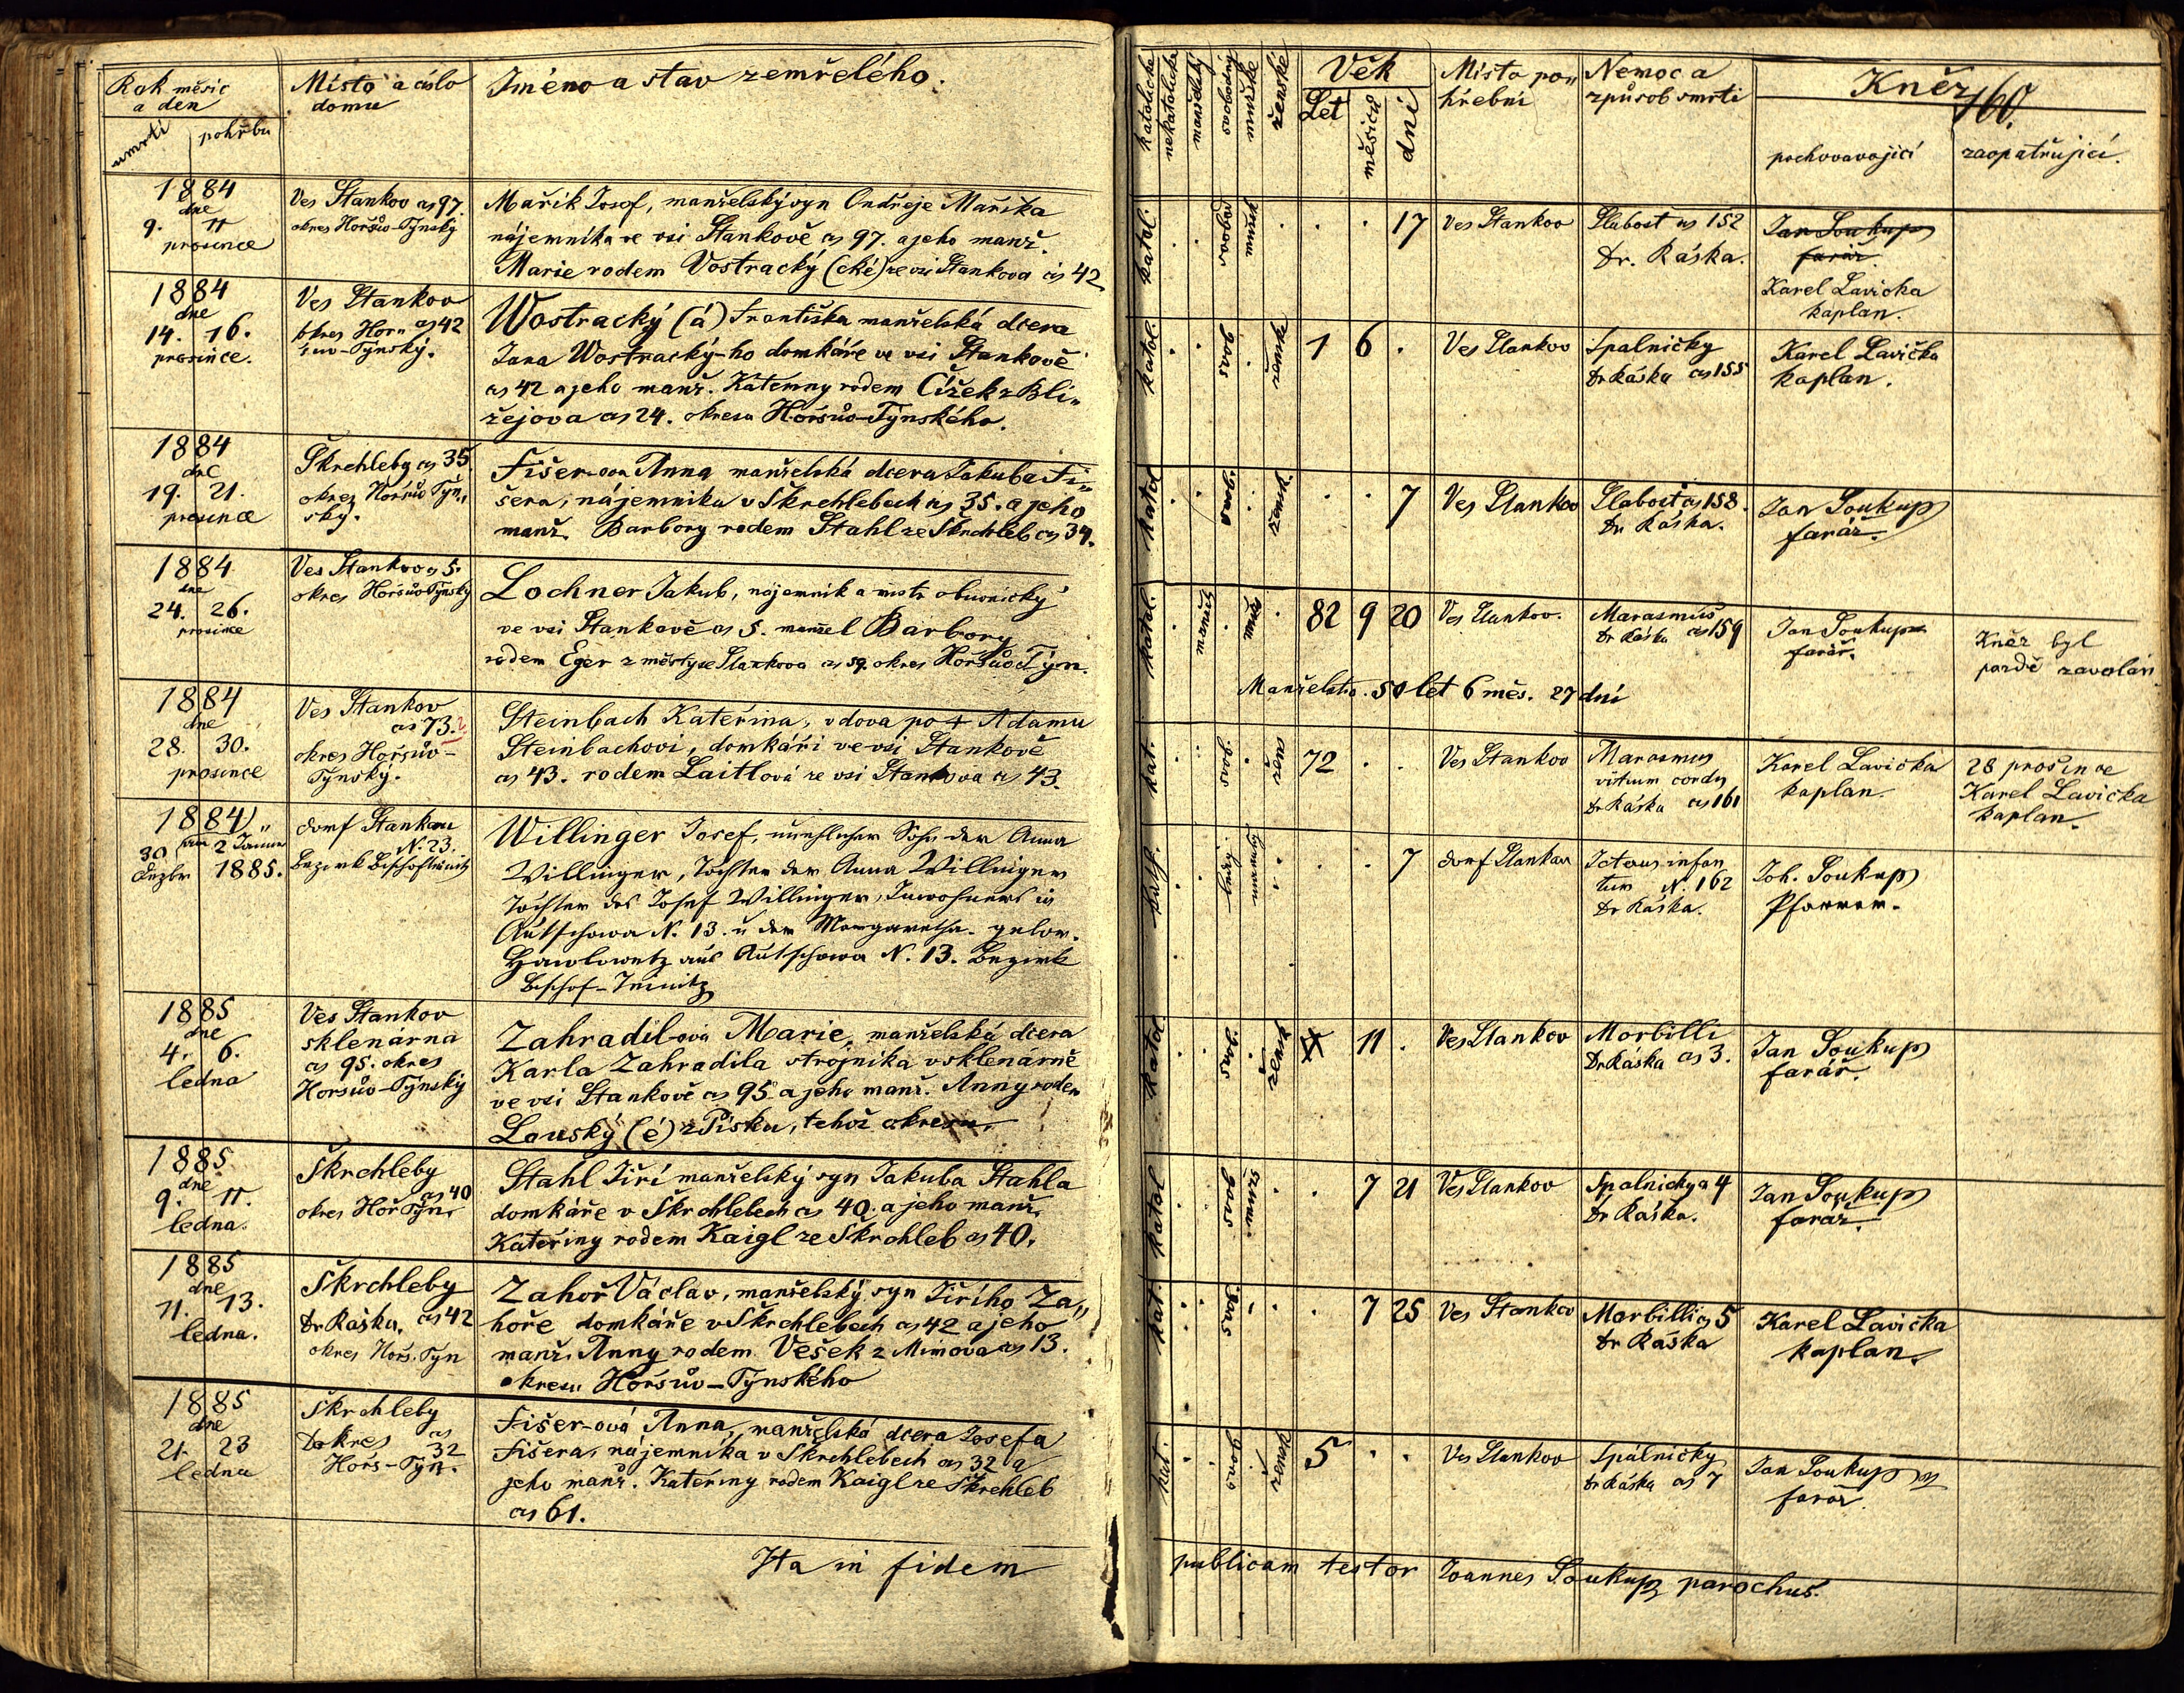 Rok měsíc a den
umrtí
pohřbu
Místo a číslo domu
Jméno a stav zemřelého.
katolické
nekatolické
manželský
svobodný
mužské
ženské
Věk
Let
měsíců
dní
Místo po„
hřební
Nemoc a
způsob smrti
Kněz
160.
pochovavající
zaopatřující.
1884
dne
9. 11
prosince
Ves Stankov čs 97.
okres Horšův-Týnský
Mařík Josef, manželský syn Ondřeje Maříka
nájemníka ve vsi Stankově čs 97. a jeho manž.
Marie rodem Vostracký (cké) ze vsi Stankova čís 42
katol.
17
Ves Stankov
Slabost čs 152
Dr. Ráska.
Jan Soukup
farář
Karel Lavička
kaplan.
1884
dne
14. 16.
prosince.
Ves Stankov
čs 42
okres Horš„
ůvo-Týnský.
Wostracký (á) Františka manželská dcera
Jana Wostracký-ho domkáře ve vsi Stankově
čs 42 a jeho manž. Kateřiny rodem Čížek z Bli„
žejova čs 24. okresu Horšůvo-Týnského.
katol.
1 6 .
Ves Stankov
Spalničky
Dr Ráska čs 155
Karel Lavička
kaplan.
1884
dne
19. 21.
prosince
Škrchleby čs 35.
okres Horšův Týn„
ský.
Fišer-ova Anna manželská dcera Jakuba Fi„
šera, nájemníka v Škrchlebech čs 35. a jeho
manž. Barbory rodem Stahl ze Škrchleb čs 34.
katol
7
Ves Stankov
Slabost čs 158.
Dr Ráska.
Jan Soukup
farář.
1884
dne
24. 26.
prosince
Ves Stankov čs 5.
okres Horšůvo Týnský
Lochner Jakub, nájemník a mistr obuvnický
ve vsi Stankově čs 5. manžel Barbory
rodem Eger z městyse Stankova čs 59. okres Horšůvo Týn.
katol.
82 9 20
Ves Stankov.
Marasmus
Dr Ráska čs 159
Jan Soukup
farář.
Kněz byl
pozdě zavolán
Manželstvo. 50 let 6 měs. 27 dní
1884
dne
28. 30.
prosince
Ves Stankov
čs 73.
okres Horšův-
Týnský.
Steinbach Kateřina, vdova po + Adamu
Steinbachovi, domkáři ve vsi Stankově
čs 43. rodem Laitlová ze vsi Stankova čs 43.
kat.
72 . .
Ves Stankov
Marasmus
vitium cordis
Dr Ráska čs 161
Karel Lavička
kaplan.
28 prosince
Karel Lavička
kaplan.
1884
30 am 2 Januar
Dezbr 1885.
Dorf Stankau
N. 23.
Bezirk Bischofteinitz
Willinger Josef, unehelicher Sohn der Anna
Willinger, Tochter der Anna Willinger
Tochter des Josef Willinger, Inwohners in
Autschowa N. 13. u der Margaretha gebor.
Hawlowetz aus Autschowa N. 13. Bezirk
Bischof-Teinitz
kath.
7
Dorf Stankau
Icterus infan
tum N. 162
Dr Ráska.
Joh. Soukup
Pfarrer.
1885
dne
4. 6.
ledna
Ves Stankov
sklenárna
čs 95. okres
Horšůvo-Týnský
Zahradil-ová Marie, manželská dcera
Karla Zahradila strojníka v sklenárně
ve vsi Stankově čs 95 a jeho manž. Anny rodem
Louský (é) z Písku, tehož okresu.
katol
11 .
Ves Stankov
Morbilli
Dr Ráska čs 3.
Jan Soukup
farář.
1885
dne
9. 11.
ledna.
Škrchleby
čs 40
okres Horš Týn.
Stahl Jiří manželský syn Jakuba Stahla
domkáře v Škrchlebech čs 40. a jeho manž.
Kateřiny rodem Kaigl ze Škrchleb čs 40.
katol
7 21
Ves Stankov
Spalničky čs 4
Dr Ráska.
Jan Soukup
farář.
1885
dne
11. 13.
ledna.
Škrchleby
Dr Ráska. čs 42
okres Horš. Týn
Zahoř Václav, manželský syn Jiřího Za„
hoře domkáře v Škrchlebech čs 42 a jeho
manž. Anny rodem Vešek z Mimova čs 13.
okresu Horšůvo-Týnského
kat.
7 25
Ves Stankov
Morbilli čs 5
Dr Ráska
Karel Lavička
kaplan.
1885
dne
21. 23
ledna
Škrchleby
čs
okres 32
Horš-Týn.
Fišer-ová Anna, manželská dcera Josefa
Fišera, nájemníka v Škrchlebech čs 32 a
jeho manž. Kateřiny rodem Kaigl ze Škrchleb
čs 61.
kat.
5 . .
Ves Stankov
Spalničky
Dr Ráska čs 7
Jan Soukup
farář.
Ita in fidem publicam testor Joannes Soukup parochus.